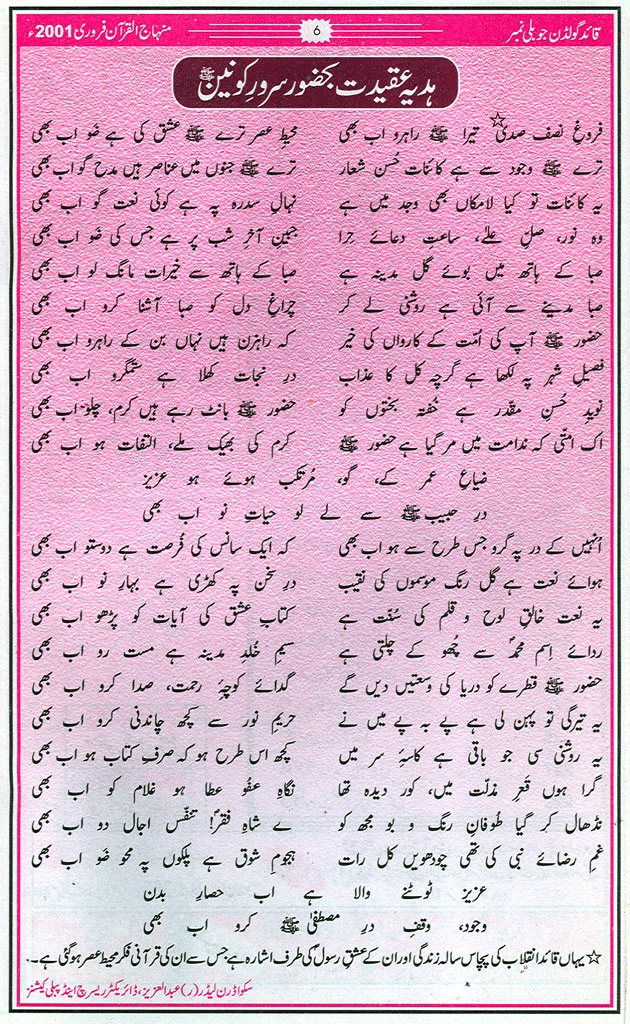 قائد گولڈن جوبلی نمبر 6 منہاج القرآن فروری 2001ء
ہدیہ عقیدت بحضور سرورِ کونین ﷺ
فروغِ نصف صدی☆ تیرا ﷺ راہرو اب بھی محیطِ عصر ترے ﷺ عشق کی ہے ضَو اب بھی
ترے ﷺ وجود سے ہے کائنات حُسن شعار ترے ﷺ جنوں میں عناصر ہیں مدح گو اب بھی
یہ کائنات تو کیا لامکاں بھی وجد میں ہے نہالِ سدرہ پہ ہے کوئی نعت گو اب بھی
وہ نور، صلِ علیٰ، ساعتِ دعائے حِرا جبینِ آخرِ شب پر ہے جس کی ضَو اب بھی
صبا کے ہاتھ میں بوئے گلِ مدینہ ہے صبا کے ہاتھ سے خیرات مانگ لو اب بھی
صبا مدینے سے آئی ہے روشنی لے کر چراغِ دل کو صبا آشنا کرو اب بھی
حضور ﷺ آپ کی اُمّت کے کارواں کی خیر کہ راہزن ہیں نہاں بن کے راہرو اب بھی
فصیلِ شہر پہ لکھا ہے گرچہ کل کا عذاب درِ نجات کھلا ہے ستمگرو اب بھی
نویدِ حُسنِ مقدّر ہے خُفتہ بختوں کو حضور ﷺ بانٹ رہے ہیں کرم، چلو اب بھی
اک امّتی کہ ندامت میں مر گیا ہے حضور ﷺ کرم کی بھیک ملے، التفات ہو اب بھی
ضیاعِ عمر کے، گو، مُرتکب ہوئے ہو عزیز
درِ حبیب ﷺ سے لے لو حیاتِ نو اب بھی
اُنہیں کے در پہ گرو جس طرح سے ہو اب بھی کہ ایک سانس کی فُرصت ہے دوستو اب بھی
ہوائے نعت ہے گل رنگ موسموں کی نقیب درِ سخن پہ کھڑی ہے بہارِ نو اب بھی
یہ نعت خالقِ لوح و قلم کی سُنّت ہے کتابِ عشق کی آیات کو پڑھو اب بھی
ردائے اِسمِ محمدؐ سے چُھو کے چلتی ہے نسیمِ خُلدِ مدینہ ہے مست رو اب بھی
حضور ﷺ قطرے کو دریا کی وسعتیں دیں گے گدائے کوچۂ رحمت، صدا کرو اب بھی
یہ تیرگی تو پہن لی ہے پے بہ پے میں نے حریمِ نور سے کچھ چاندنی کرو اب بھی
یہ روشنی سی جو باقی ہے کاسۂ سر میں کچھ اس طرح ہو کہ صرفِ کتاب ہو اب بھی
گرا ہوں قعرِ مذلّت میں، کور دیدہ تھا نگاہِ عفُو عطا ہو غلام کو اب بھی
نڈھال کر گیا طُوفانِ رنگ و بو مجھ کو اے شاہِ فقرؐ! تنفّس اجال دو اب بھی
غمِ رضائے نبی کی تھی چودھویں کل رات ہجومِ شوق ہے پلکوں پہ محوِ ضَو اب بھی
عزیز ٹوٹنے والا ہے اب حصارِ بدن
وجود، وقفِ درِ مصطفیٰ ﷺ کرو اب بھی
☆ یہاں قائد انقلاب کی پچاس سالہ زندگی اور ان کے عشقِ رسولؐ کی طرف اشارہ ہے جس سے ان کی قرآنی فکر محیط عصر ہو گئی ہے۔
سکواڈرن لیڈر (ر) عبدالعزیز، ڈائریکٹر ریسرچ اینڈ پبلی کیشنز